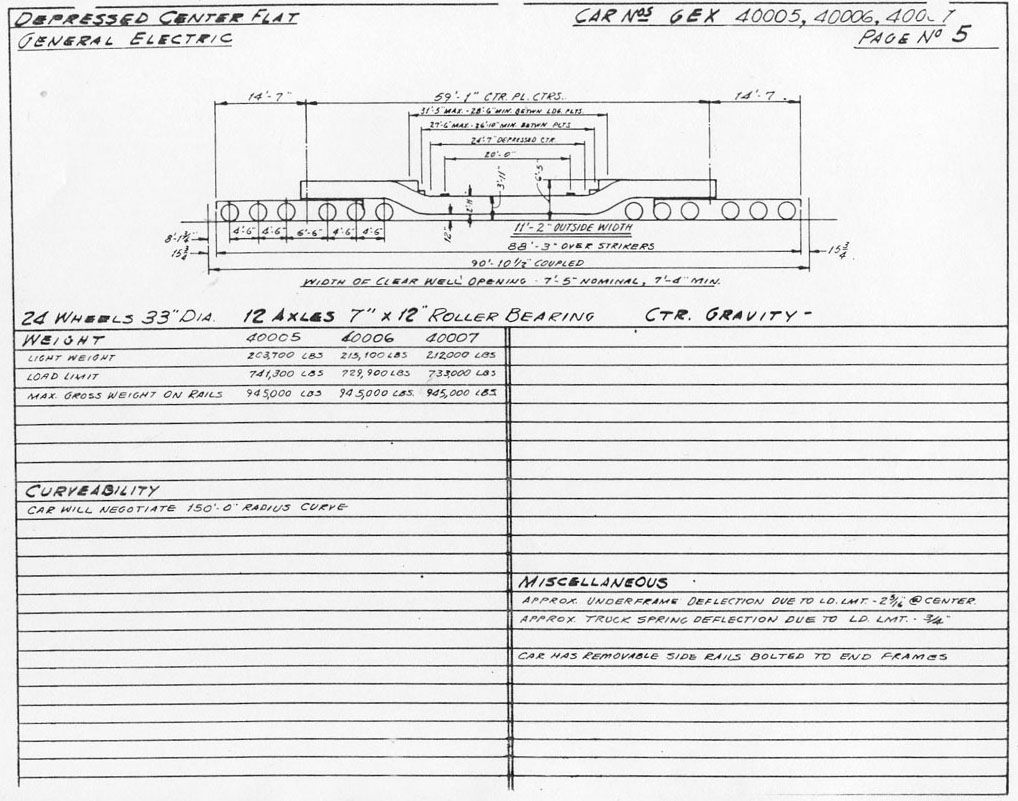 DEPRESSED CENTER FLAT
GENERAL ELECTRIC
CAR Nos GEX 40005, 40006, 400 7
PAGE No 5
14'-7" 59'-1" CTR. PL. CTRS. 14'-7
31'-5" MAX. - 28'-6" MIN. BETWN LDG. PLTS.
27'-6" MAX. - 26'-10" MIN. BETWN PLTS
24'-7" DEPRESSED CTR.
20'-0"
3'-11"
6'-5"
4'-6" 4'-6" 6'-6" 4'-6" 4'-6"
11'-2" OUTSIDE WIDTH
88'-3" OVER STRIKERS
15 3/4 15 3/4
90'-10 1/2" COUPLED
WIDTH OF CLEAR WELL OPENING - 7'-5" NOMINAL, 7'-4" MIN.
24 WHEELS 33" DIA. 12 AXLES 7" X 12" ROLLER BEARING CTR. GRAVITY -
WEIGHT 40005 40006 40007
LIGHT WEIGHT 203,700 LBS 215,100 LBS 212,000 LBS
LOAD LIMIT 741,300 LBS 729,900 LBS 733,000 LBS
MAX. GROSS WEIGHT ON RAILS 945,000 LBS 945,000 LBS. 945,000 LBS.
CURVEABILITY
CAR WILL NEGOTIATE 150'-0" RADIUS CURVE
MISCELLANEOUS
APPROX. UNDERFRAME DEFLECTION DUE TO LD. LMT. - 2 5/16" @ CENTER.
APPROX. TRUCK SPRING DEFLECTION DUE TO LD. LMT. - 3/4"
CAR HAS REMOVABLE SIDE RAILS BOLTED TO END FRAMES